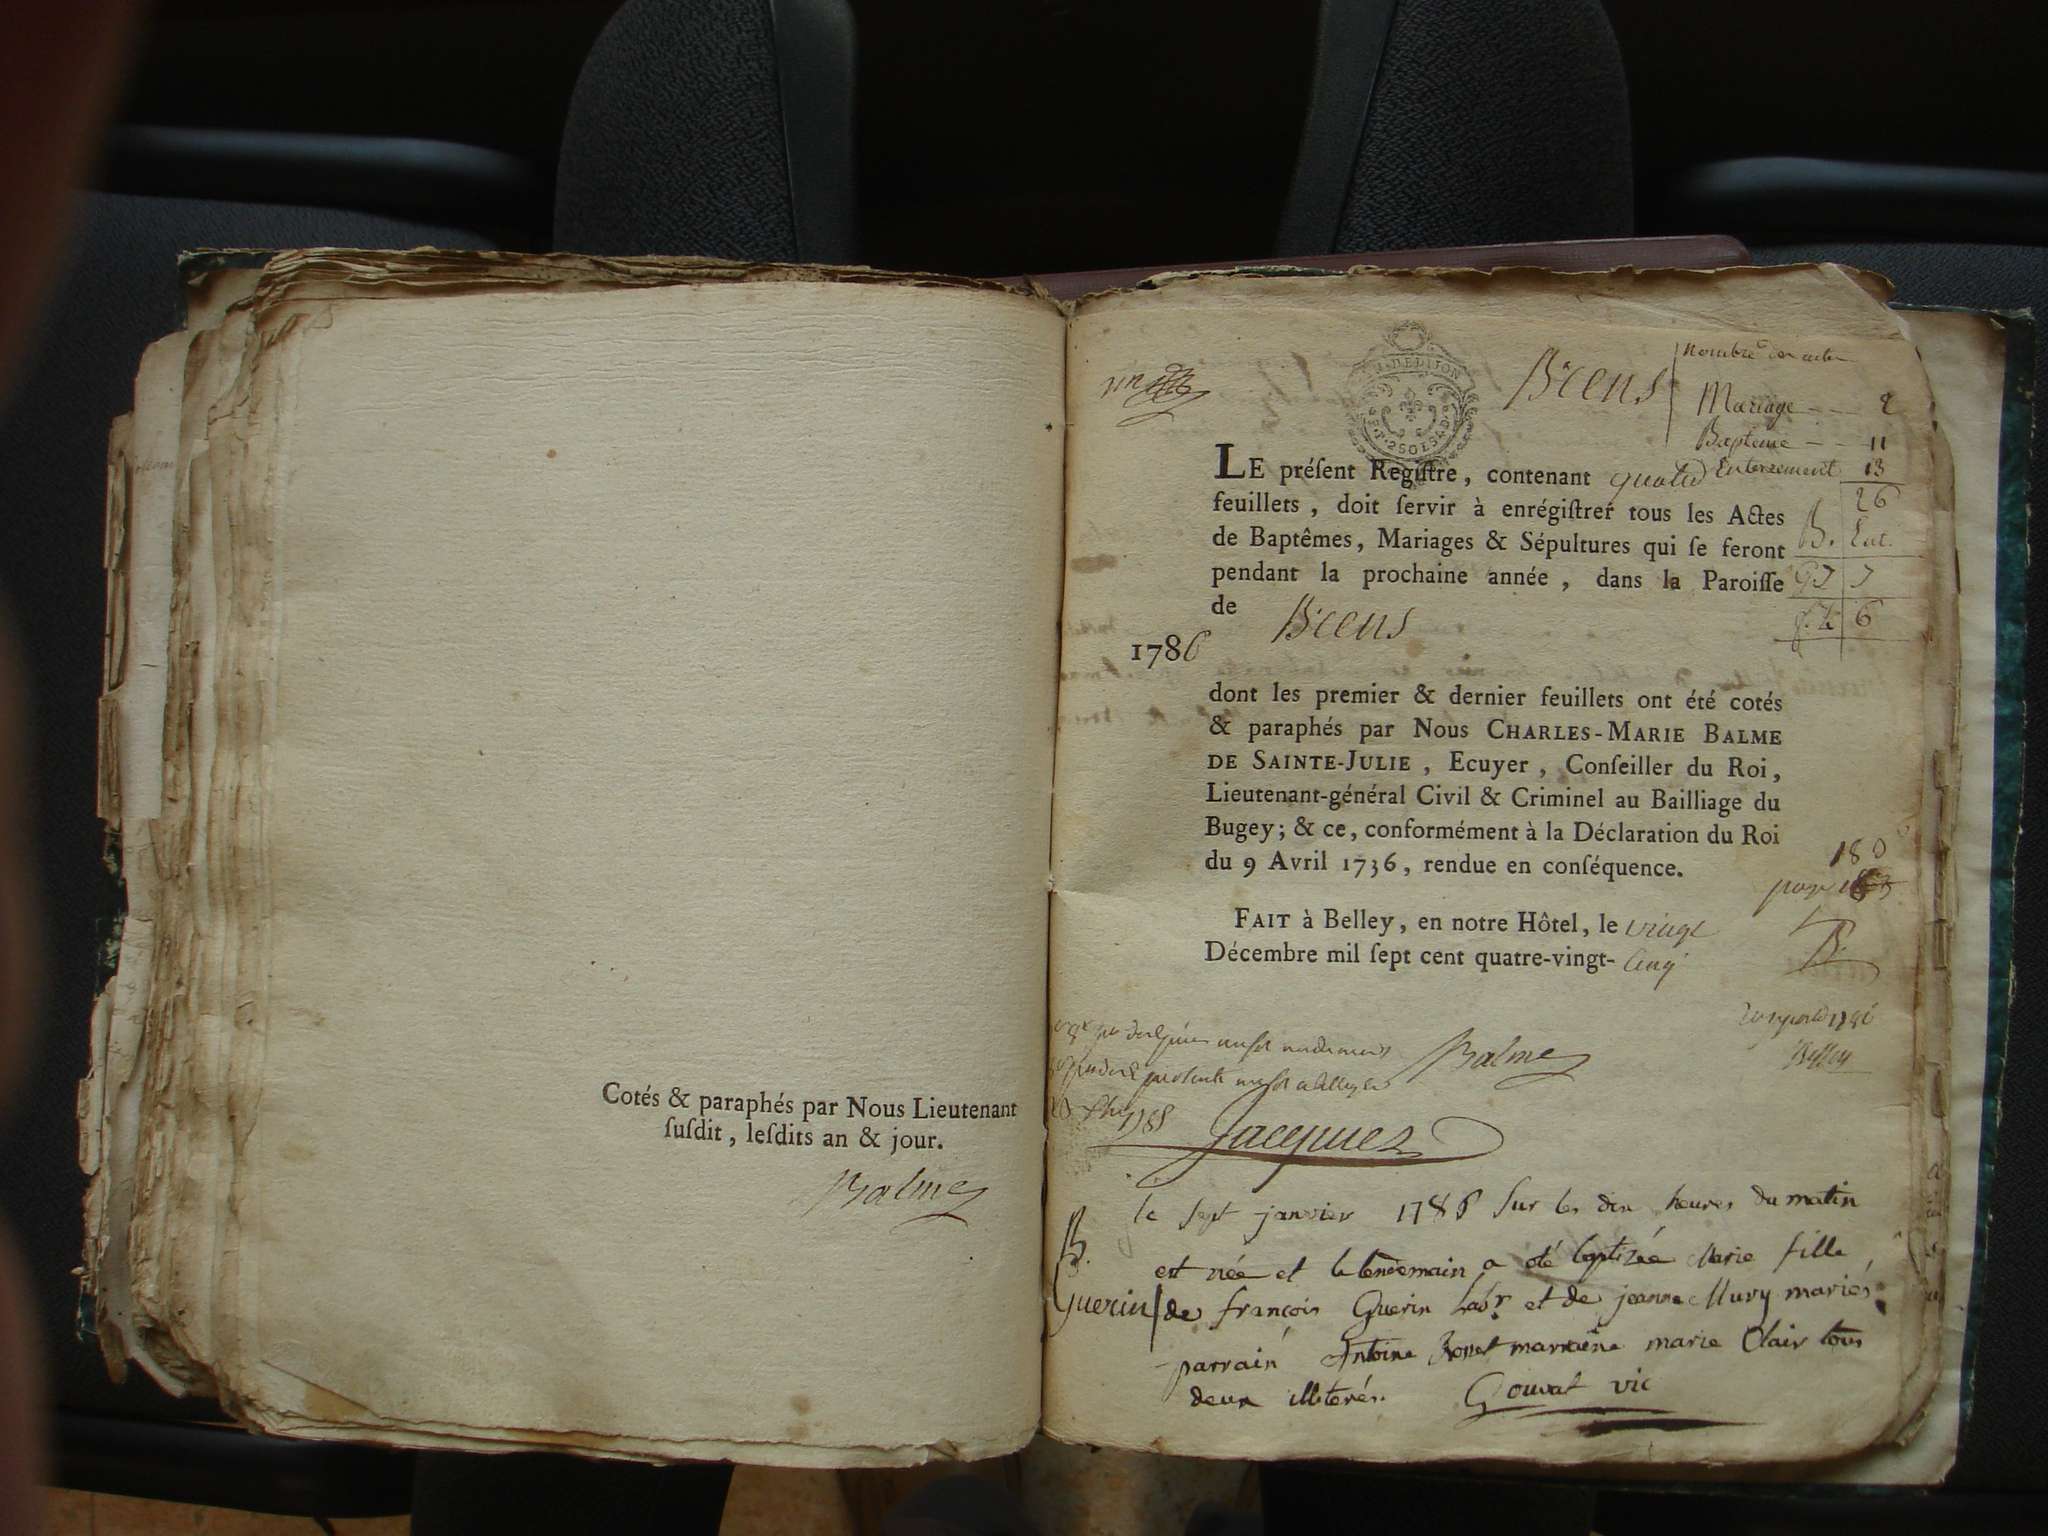 Cotés & paraphés par Nous Lieutenant
ſuſdit, leſdits an & jour.
Balme
Briens
Nombre des actes
Mariage -- 2
Bapteme -- 11
Enterrement 13
26
LE préſent Regiſtre, contenant quatre
feuillets, doit ſervir à enrégiſtrer tous les Actes
de Baptêmes, Mariages & Sépultures qui ſe feront
pendant la prochaine année, dans la Paroiſſe
de Briens
1786
B. Ent.
G 5 7
f. 6 6
dont les premier & dernier feuillets ont été cotés
& paraphés par Nous CHARLES-MARIE BALME
DE SAINTE-JULIE, Ecuyer, Conſeiller du Roi,
Lieutenant-général Civil & Criminel au Bailliage du
Bugey; & ce, conformément à la Déclaration du Roi
du 9 Avril 1736, rendue en conſéquence.
FAIT à Belley, en notre Hôtel, le vingt
Décembre mil ſept cent quatre-vingt-cinq
Balme
Belley
1785
Jacquez
le sept janvier 1786 sur les dix heures du matin
B.
est née et le lendemain a été baptizée Marie fille
Guerin de françois Guerin labr et de jeanne Mury mariés
parrain Antoine marraine marie Clair tous
deux illiterés. Gouvat vic